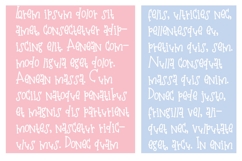 lorem ipsum dolor sit
amet, consectetuer adip-
iscing elit. Aenean com-
modo ligula eget dolor.
Aenean massa. Cum
sociis natoque penatibus
et magnis dis parturient
montes, nascetur ridic-
ulus mus. Donec quam
felis, ultricies nec,
pellentesque eu,
pretium quis, sem.
Nulla consequat
massa quis enim.
Donec pede justo,
fringilla vel, ali-
quet nec, vulputate
eget, arcu. In enim